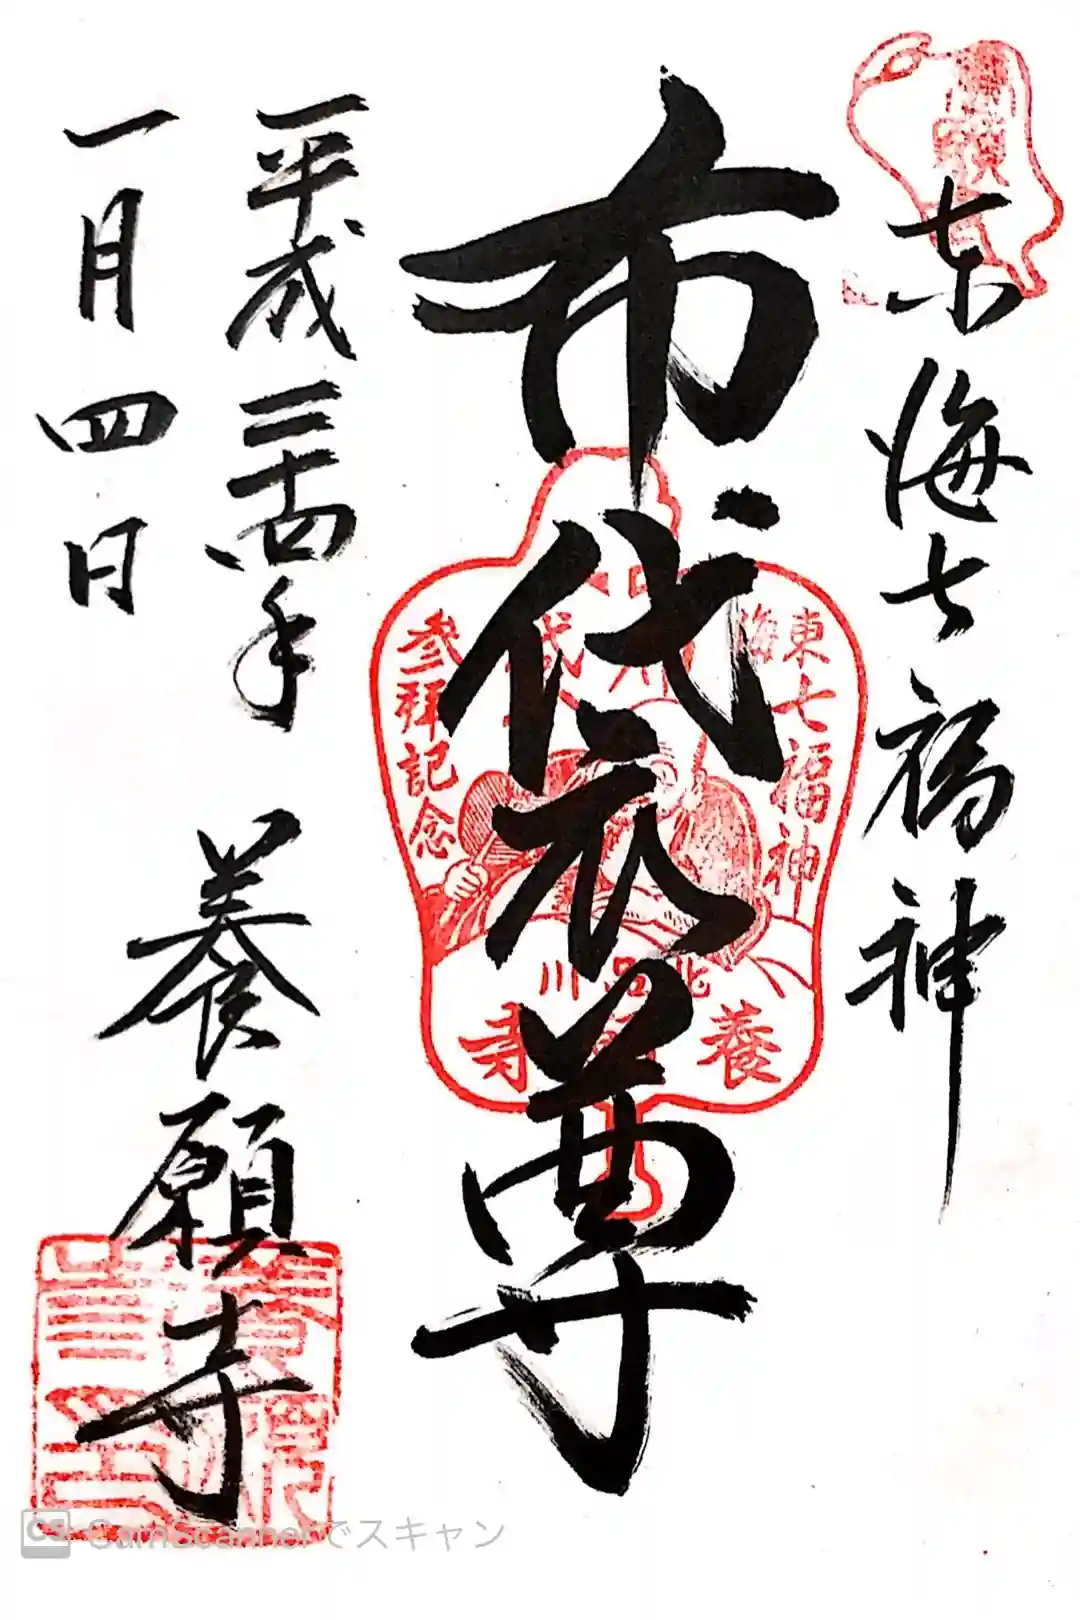 東海七福神
布袋尊
平成二十四年
一月四日
養願寺
東海七福神
参拝記念
北品川
養願寺
CS CamScannerでスキャン